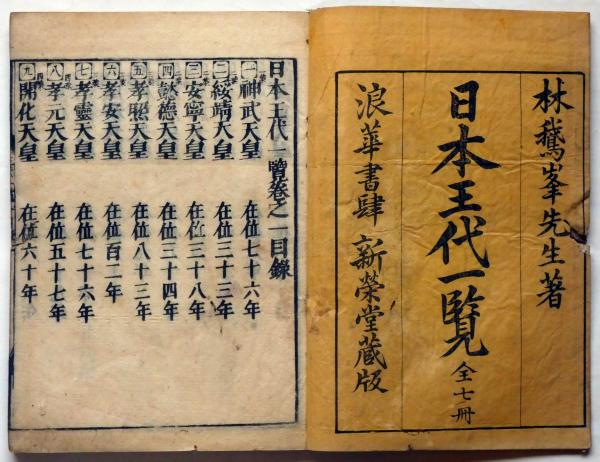 林鵞峯先生著
日本王代一覧 全七冊
浪華書肆 新榮堂蔵版
日本王代一覽卷之一目錄
一 神武天皇 在位七十六年
二 綏靖天皇 在位三十三年
三 安寧天皇 在位三十八年
四 懿德天皇 在位三十四年
五 孝昭天皇 在位八十三年
六 孝安天皇 在位百二年
七 孝靈天皇 在位七十六年
八 孝元天皇 在位五十七年
九 開化天皇 在位六十年